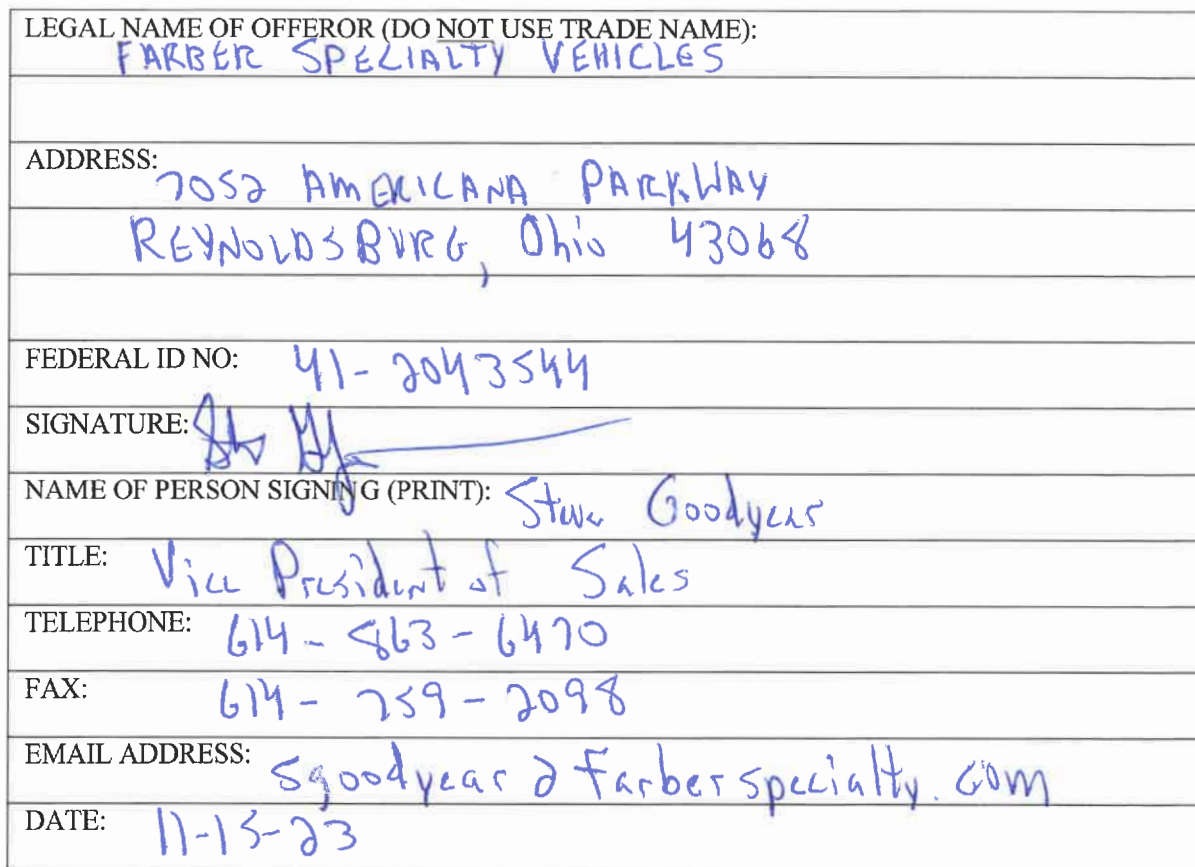 LEGAL NAME OF OFFEROR (DO NOT USE TRADE NAME):
FARBER SPECIALTY VEHICLES
ADDRESS:
7052 AMERICANA PARKWAY
REYNOLDSBURG, Ohio 43068
FEDERAL ID NO: 41-2043544
SIGNATURE:
NAME OF PERSON SIGNING (PRINT): Steve Goodyear
TITLE: Vice President of Sales
TELEPHONE: 614-863-6470
FAX: 614-759-2098
EMAIL ADDRESS: sgoodyear@farberspecialty.com
DATE: 11-15-23